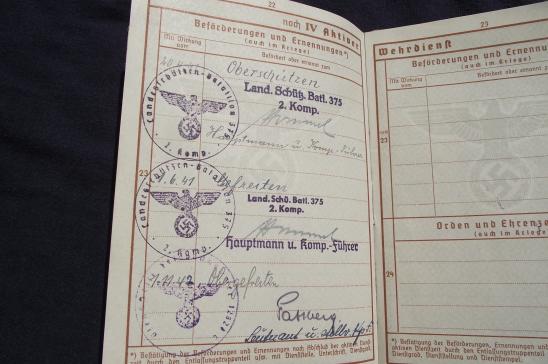 22
noch IV Aktiver
Beförderungen und Ernennungen*)
(auch im Kriege)
Mit Wirkung vom
Befördert oder ernannt zum
Oberschützen
Land. Schütz. Batl. 375
2. Komp.
Hauptmann u. Komp.-Führer
Landesschützen-Bataillon 375
2. Komp.
23
1.6.41
Gefreiten
Land. Schü. Batl. 375
2. Komp.
Hauptmann u. Komp.-Führer
Landesschützen-Bataillon 375
2. Komp.
1.11.42
Obergefreiten
Leutnant u.
*) Bestätigung der Beförderungen und Ernennungen nach Abschluß der aktiven Dienst-
zeit durch den Entlassungstruppenteil usw. mit Dienststelle, Unterschrift, Dienstgrad,
23
Wehrdienst
Beförderungen und Ernennu
(auch im Kriege)
Mit Wirkung vom
Befördert oder ernannt z
23
Orden und Ehrenze
(auch im Kriege
24
*) Bestätigung der Beförderungen und Ernennu
aktiven Dienstzeit durch den Entlassungstru